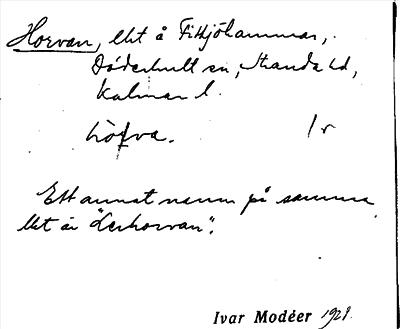 Horvan, llet å Fittjöhammar,
Döderhult sn, Stranda hd,
Kalmar l.
hòrva. 1 r
Ett annat namn på samma
llet är "Lerhorvan".
Ivar Modéer 1929.